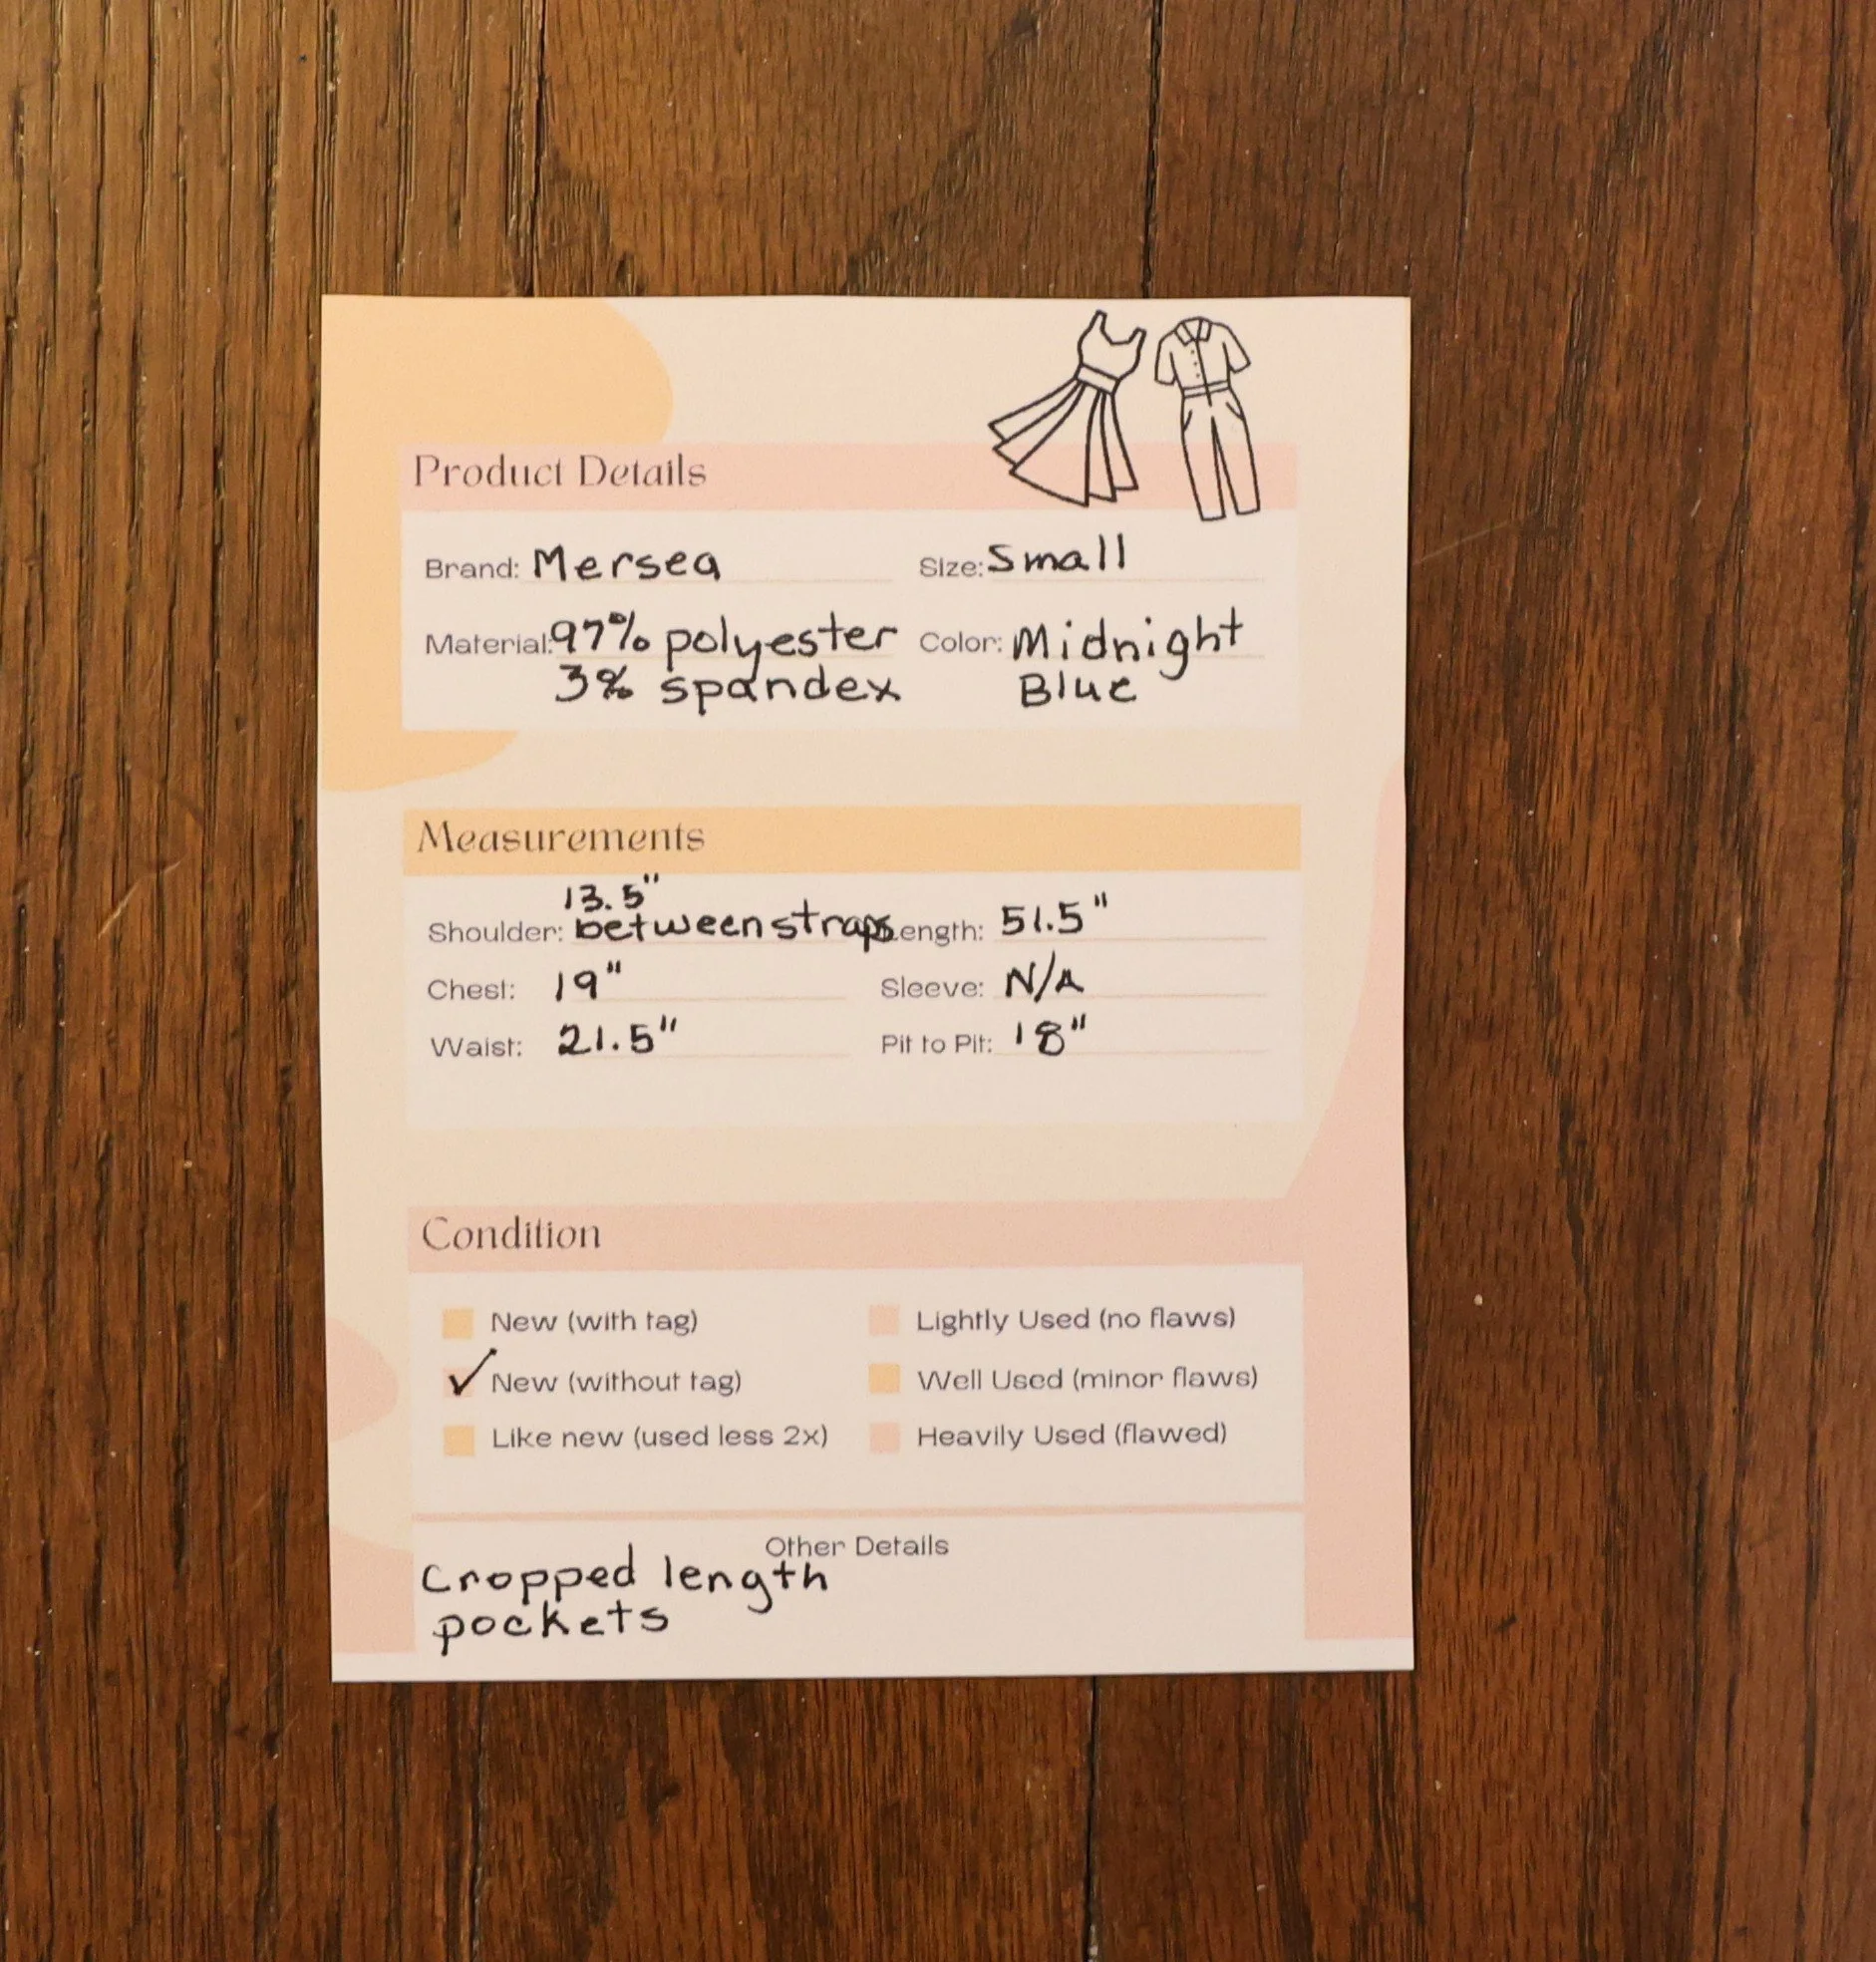 Product Details
Brand: Mersea Size: Small
Material: 97% polyester Color: Midnight
3% spandex Blue
Measurements
13.5"
Shoulder: between straps Length: 51.5"
Chest: 19" Sleeve: N/A
Waist: 21.5" Pit to Pit: 18"
Condition
New (with tag) Lightly Used (no flaws)
✓ New (without tag) Well Used (minor flaws)
Like new (used less 2x) Heavily Used (flawed)
Other Details
Cropped length
pockets